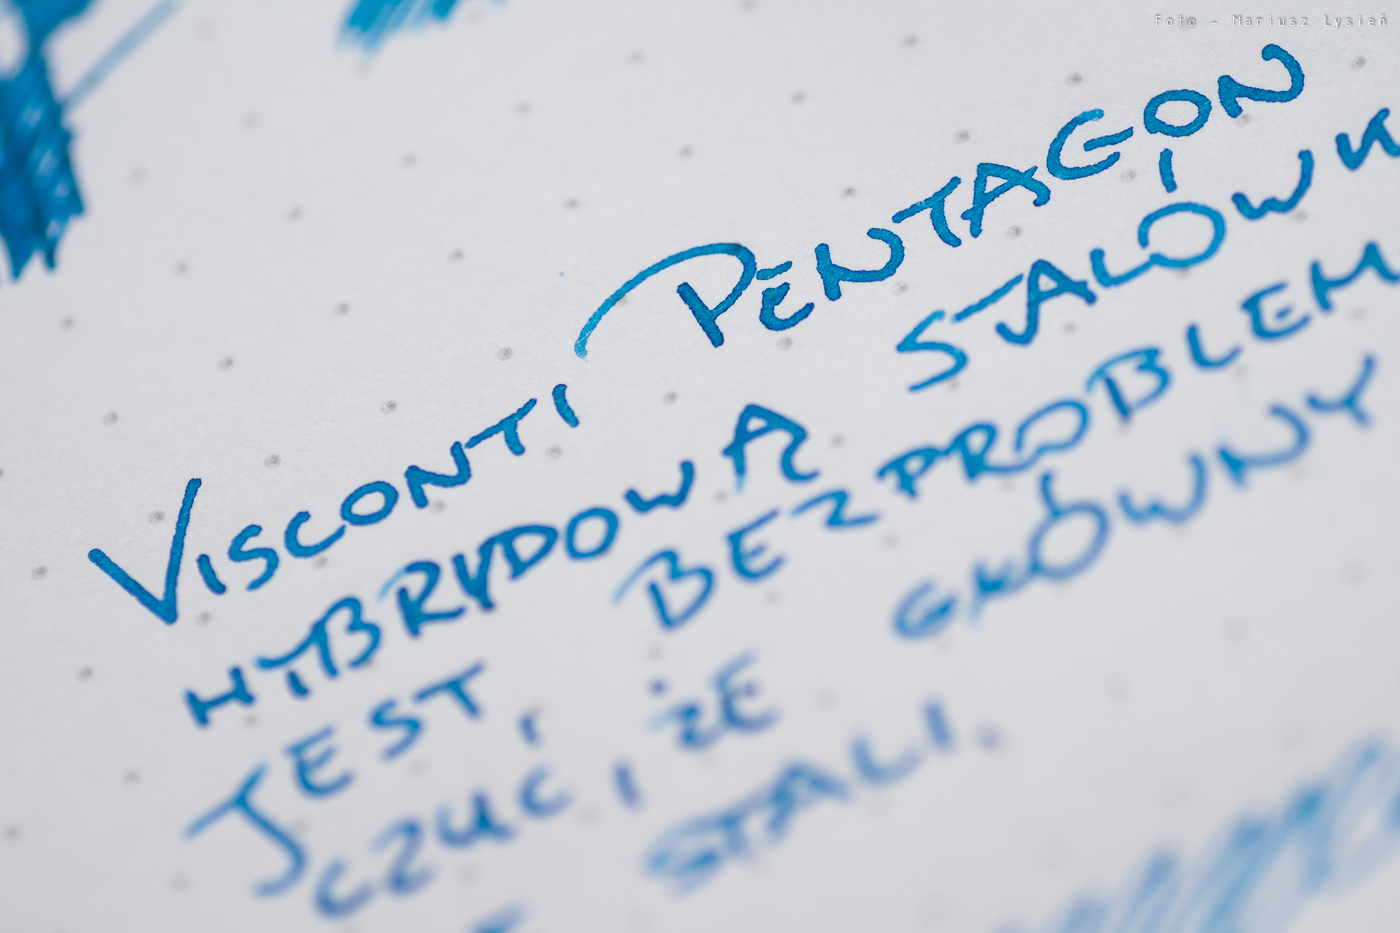 Foto - Mariusz Łysień
VISCONTI PENTAGON
HYBRYDOWA STALÓWK
JEST BEZPROBLEM
CZUĆ, ŻE GŁÓWNY
STALI.